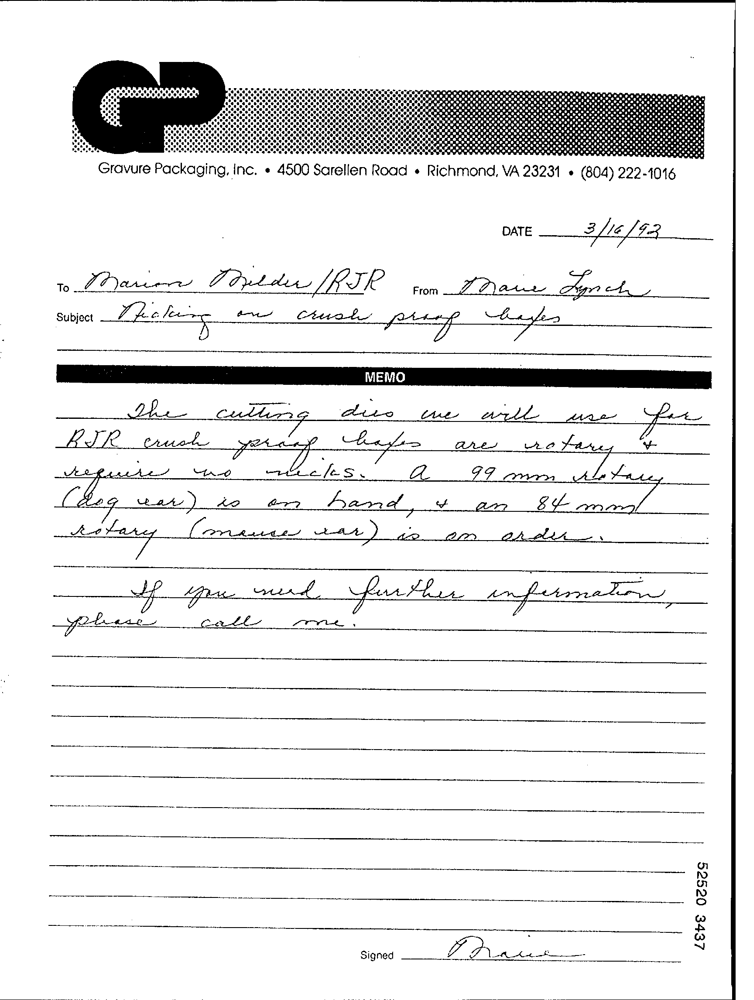 GP
Gravure Packaging, Inc. • 4500 Sarellen Road • Richmond, VA 23231 • (804) 222-1016
DATE 3/16/92
To Marion Milder/RJR From Marie Lynch
Subject Nicking on crush proof boxes
MEMO
The cutting dies we will use for
RJR crush proof boxes are rotary &
require no nicks. A 99 mm rotary
(dog ear) is on hand, & an 84 mm
rotary (mouse ear) is on order.
If you need further information,
please call me.
Signed Marie
52520 3437